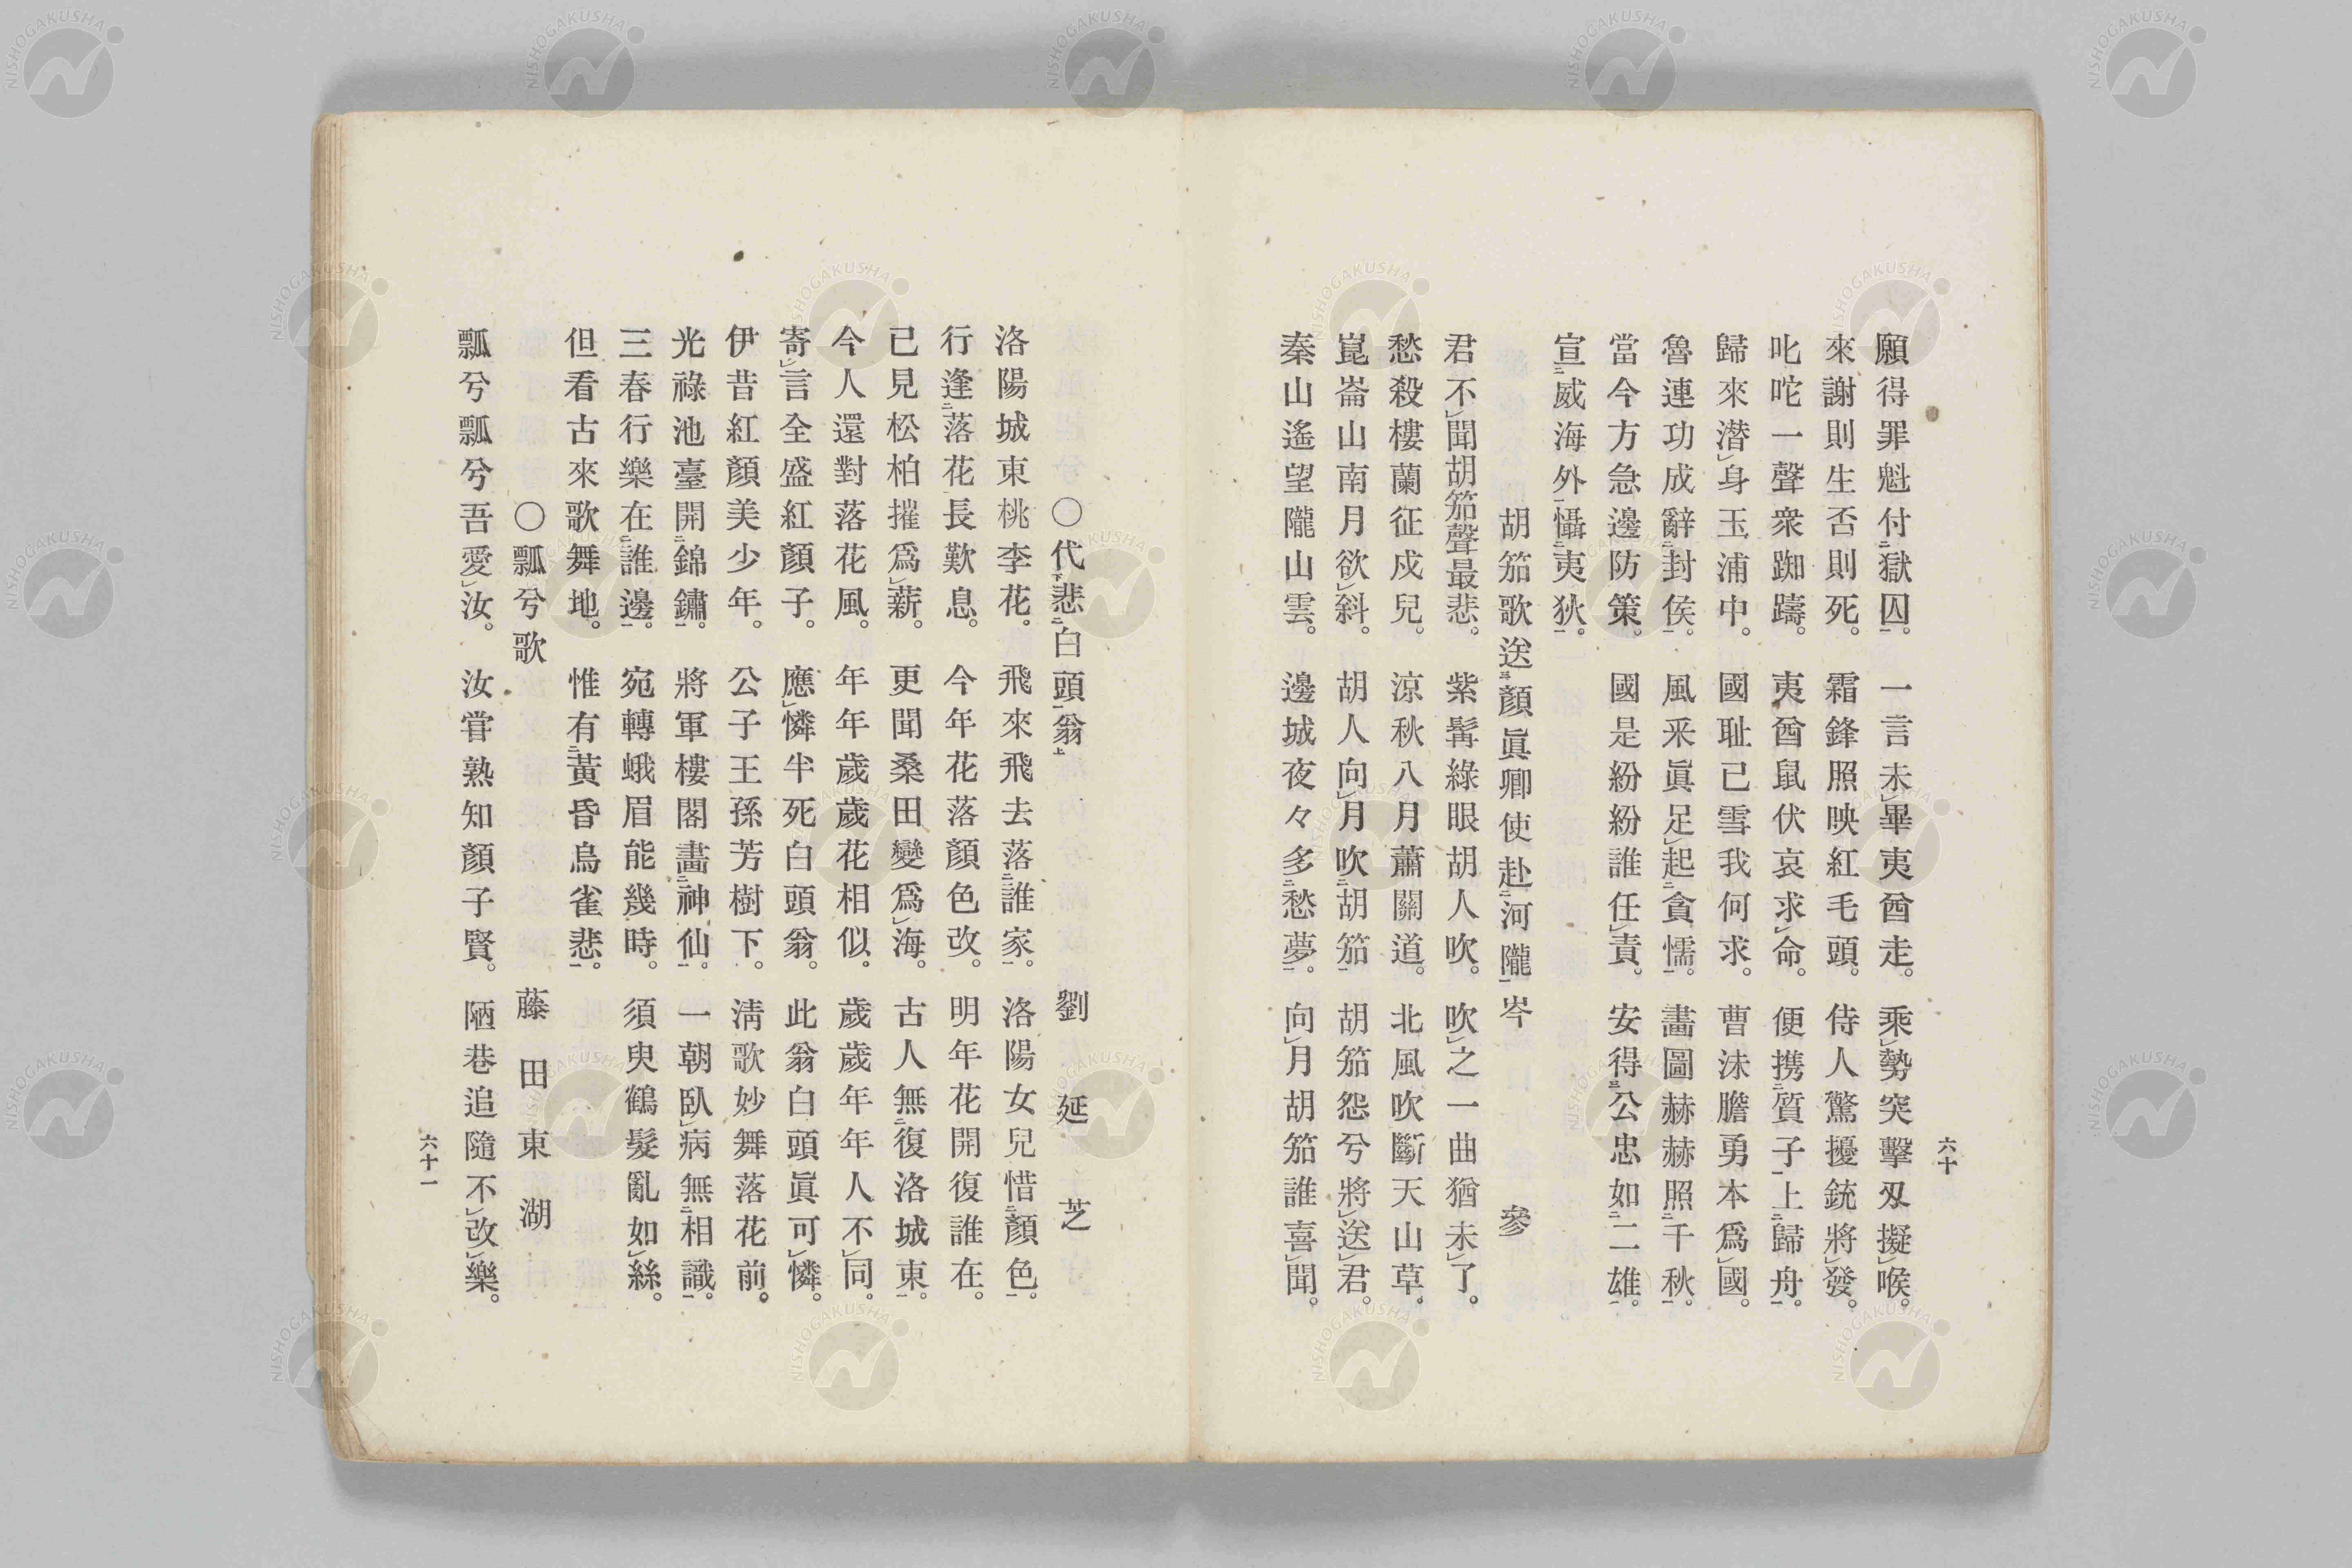 願得罪魁付二獄囚一。 一言未レ畢夷酋走。 乘レ勢突擊刄擬レ喉。
來謝則生否則死。 霜鋒照映紅毛頭。 侍人驚擾銃將レ發。
叱咤一聲衆踟躊。 夷酋鼠伏哀求レ命。 便携二質子一上二歸舟一。
歸來潜レ身玉浦中。 國耻已雪我何求。 曹沫膽勇本爲レ國。
魯連功成辭二封侯一。 風采眞足レ起二貪懦一。 畵圖赫赫照二千秋一。
當今方急邊防策。 國是紛紛誰任レ責。 安得三公忠如二二雄一。
宣二威海外一懾二夷狄一。
胡笳歌送三顏眞卿使赴二河隴一 岑參
君不レ聞胡笳聲最悲。 紫髯綠眼胡人吹。 吹レ之一曲猶未レ了。
愁殺樓蘭征戍兒。 涼秋八月蕭關道。 北風吹斷天山草。
崑崙山南月欲レ斜。 胡人向レ月吹二胡笳一 胡笳怨兮將レ送レ君。
秦山遙望隴山雲。 邊城夜々多二愁夢一。 向レ月胡笳誰喜レ聞。
六十
〇代下悲二白頭一翁上 劉延芝
洛陽城東桃李花。 飛來飛去落二誰家一。 洛陽女兒惜二顏色一。
行逢二落花一長歎息。 今年花落顏色改。 明年花開復誰在。
已見松柏摧爲レ薪。 更聞桑田變爲レ海。 古人無三復洛城東一。
今人還對落花風。 年年歲歲花相似。 歲歲年年人不レ同。
寄レ言全盛紅顏子。 應レ憐半死白頭翁。 此翁白頭眞可レ憐。
伊昔紅顏美少年。 公子王孫芳樹下。 淸歌妙舞落花前。
光祿池臺開二錦鏽一。 將軍樓閣畵二神仙一。 一朝臥レ病無二相識一。
三春行樂在二誰邊一。 宛轉蛾眉能幾時。 須臾鶴髮亂如レ絲。
但看古來歌舞地。 惟有二黃昏鳥雀悲一。
〇瓢兮歌 藤田東湖
瓢兮瓢兮吾愛レ汝。 汝甞熟知顏子賢。 陋巷追隨不レ改レ樂。
六十一